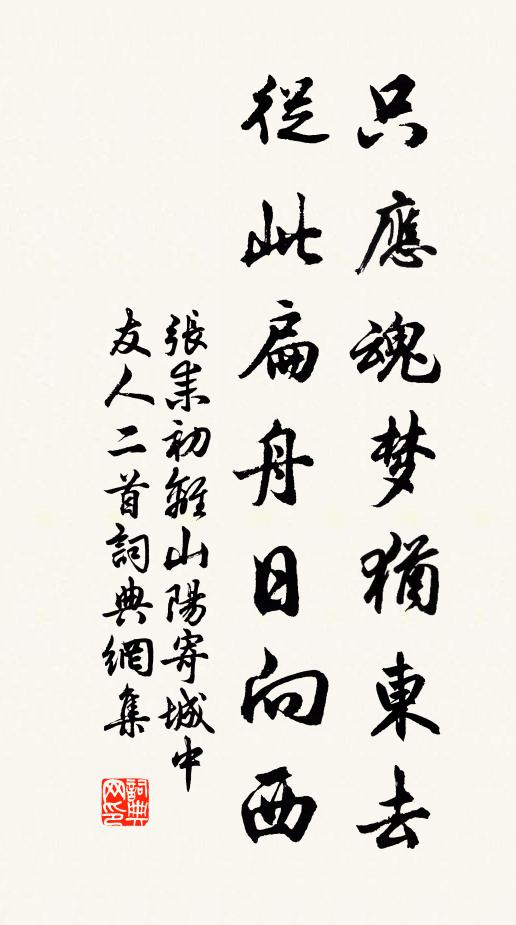 只應魂梦猶東去
從此扁舟日向西
張耒初離山陽寄城中
友人二首詞典網集
詞典
网印